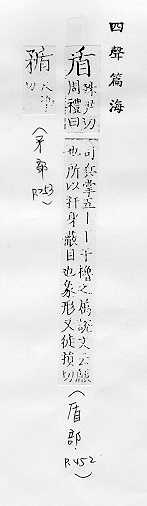 四聲篇海
盾
殊尹切
周禮曰
司兵掌五||干櫓之屬說文云瞂
也所以扞身蔽目也象形又徒損切
(盾部P.452)
𥎊
切
(矛部P.753)